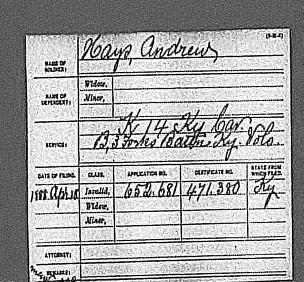 (3-H-4)
NAME OF SOLDIER: Hays, Andrew
NAME OF DEPENDENT: Widow,
Minor,
SERVICE: K 14 Ky Cav.
B, 3 Forks Battn Ky. Vols.
DATE OF FILING. CLASS. APPLICATION NO. CERTIFICATE NO. STATE FROM WHICH FILED.
1888 Apr 18 Invalid, 652.681 471.380 Ky
Widow,
Minor,
ATTORNEY:
REMARKS: